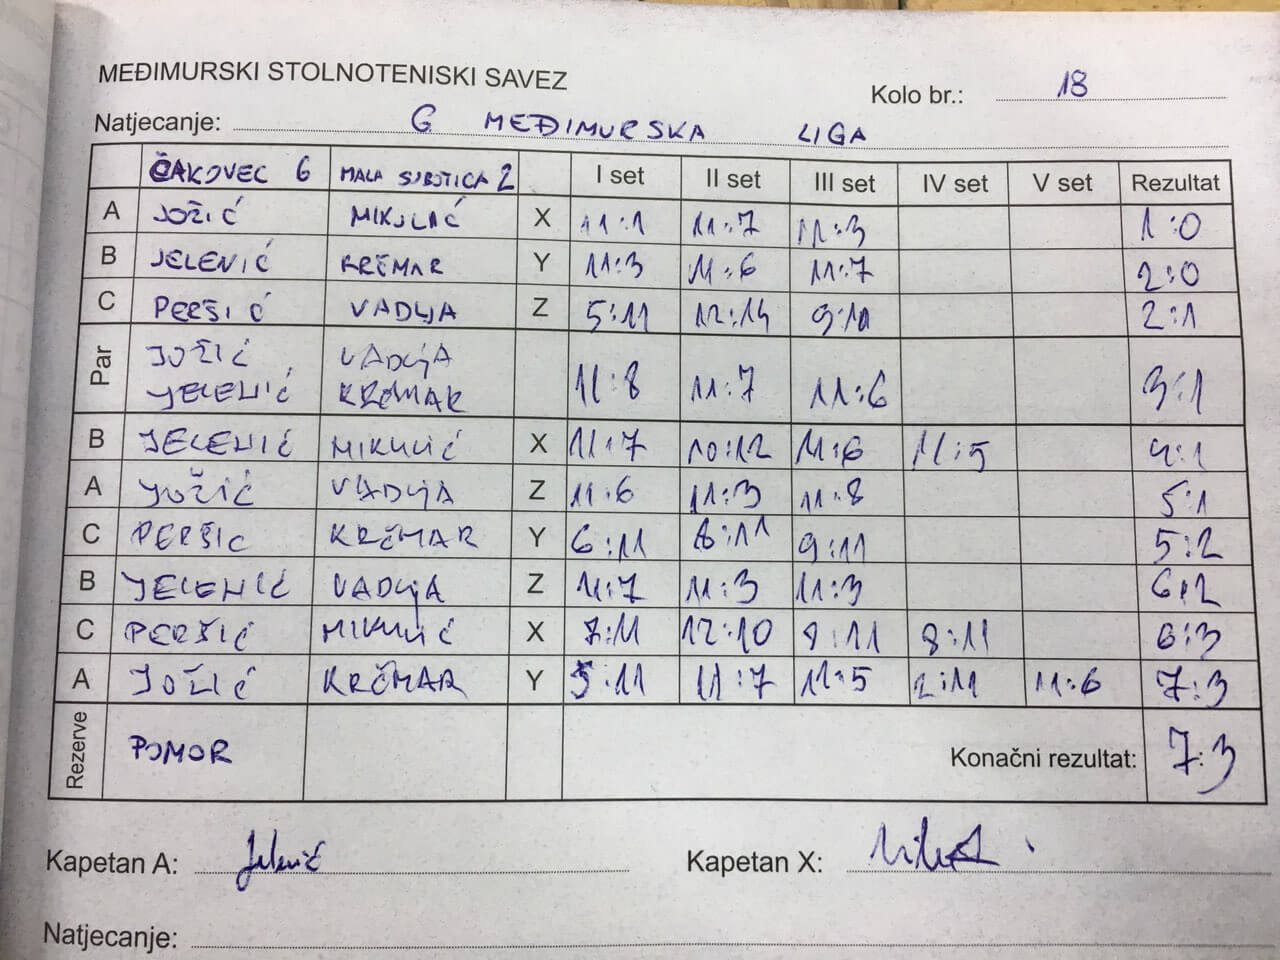 MEĐIMURSKI STOLNOTENISKI SAVEZ
Kolo br.: 18
Natjecanje: G MEĐIMURSKA LIGA
ČAKOVEC 6 MALA SUBOTICA 2 I set II set III set IV set V set Rezultat
A JOŽIĆ MIKULIĆ X 11:1 11:7 11:3 1:0
B JELENIĆ KRČMAR Y 11:3 11:6 11:7 2:0
C PERŠIĆ VADLJA Z 5:11 12:14 9:11 2:1
Par JOŽIĆ VADLJA
JELENIĆ KRČMAR 11:8 11:7 11:6 3:1
B JELENIĆ MIKULIĆ X 11:7 10:12 11:6 11:5 4:1
A JOŽIĆ VADLJA Z 11:6 11:3 11:8 5:1
C PERŠIC KRČMAR Y 6:11 8:11 9:11 5:2
B JELENIĆ VADLJA Z 11:7 11:3 11:3 6:2
C PERŠIĆ MIKULIĆ X 7:11 12:10 9:11 8:11 6:3
A JOŽIĆ KRČMAR Y 5:11 11:7 11:5 2:11 11:6 7:3
Rezerve POMOR Konačni rezultat: 7:3
Kapetan A: Jelenić Kapetan X:
Natjecanje: